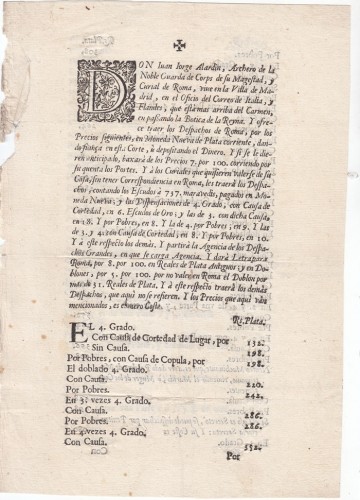 DON Iuan Iorge Alardin, Archero de la
Noble Guarda de Corps de su Magestad, y
Curial de Roma, vive en la Villa de Ma-
drid, en el Oficio del Correo de Italia, y
Flandes, que està mas arriba del Carmen,
en passando la Botica de la Reyna. Y ofre-
ce traer los Despachos de Roma, por los
Precios siguientes, en Moneda Nueva de Plata corriente, dan-
do fiança en esta Corte, ù depositando el Dinero. Y si se le die-
ren anticipado, baxarà de los Precios 7. por 100. corriendo por
su quenta los Portes. Y à los Curiales que quisieren valerse de su
Casa, sin tener Correspondencia en Roma, les traerà los Despa-
chos, contando los Escudos à 737. maravedis, pagado en Mo-
neda Nueva; y las Dispensaciones de 4. Grado, con Causa de
Cortedad, en 6. Escudos de Oro; y las de 4. con dicha Causa,
en 18. Y por Pobres, en 8. Y las de 4. por Pobres, en 9. Y las
de 3. y 4. con Causa de Cortedad, en 8. Y por Pobres, en 10.
Y à este respecto los demàs. Y partirà la Agencia de los Despa-
chos Grandes, en que se carga Agencia. Y darà Letra para
Roma, por 8. por 100. en Reales de Plata Antiguos, y en Do-
blones, por 5. por 100. por no valer en Roma el Doblon por
mas de 31. Reales de Plata. Y à este respecto traerà los demàs
Despachos, que aqui no se refieren. Y los Precios que aqui vàn
mencionados, es en mero Coste.
Rs. Plata.
EL 4. Grado.
Con Causa de Cortedad de Lugar, por 132.
Sin Causa. 198.
Por Pobres, con Causa de Copula, por 198.
El doblado 4. Grado.
Con Causa. 220.
Por Pobres. 242.
En 3. vezes 4. Grado.
Con Causa. 286.
Por Pobres. 286.
En 4. vezes 4. Grado.
Con Causa. 352.
Por